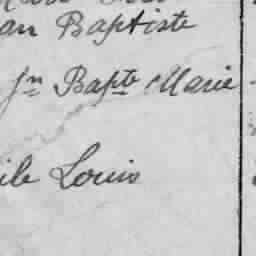 an Baptiste
Jn Bapte Marie
ile Louis